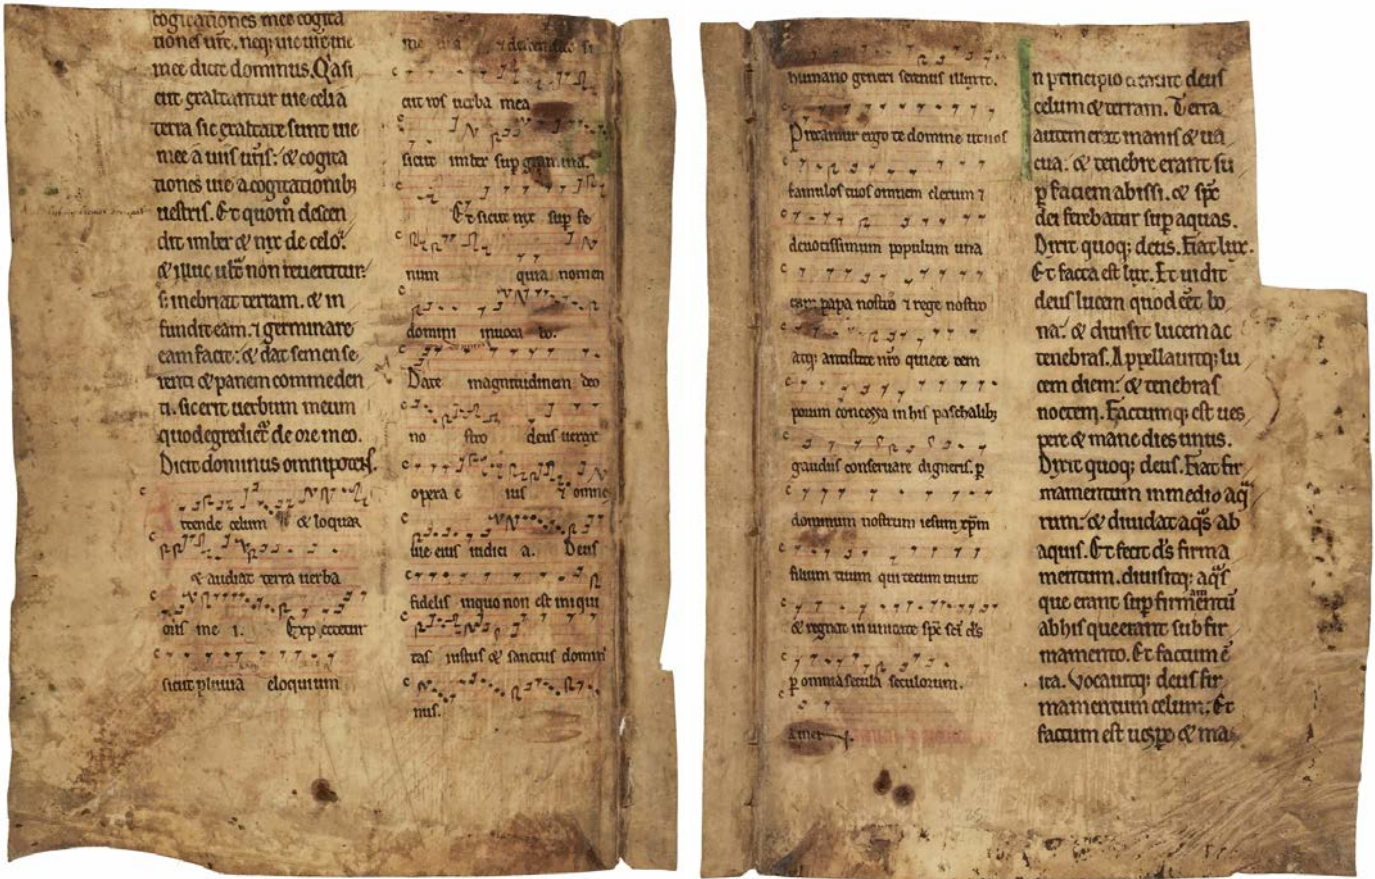 cogitationes mee cogita
tiones ur̃e. neq; uie ur̃e uie
mee dicit dominus. Q'asi
cut exaltantur uie celi a
terra sic exaltate sunt uie
mee a uiis ur̃is: & cogita
tiones uie a cogitationib;
uestris. Et quom̊ descen
dit imber & nix de celo.
& illuc ult̃ non reuertitur:
s; inebriat terram. & in
fundit eam. ⁊ germinare
eam facit: & dat semen se
renti & panem commeden
ti. sic erit uerbum meum
quod egrediet̃ de ore meo.
Dicit dominus omnipotẽs.
ttende celum & loquar
& audiat terra uerba
oris me i. Exp ectetur
sicut pluuia eloquium
me um ⁊ descendant si
cut ros uerba mea
sicut imber sup gramina.
Et sicut nix sup fe
num quia nomen
domini inuoca bo.
Date magnitudinem deo
no stro deus uerax
opera e ius ⁊ omnes
uie eius iudici a. Deus
fidelis in quo non est iniqui
tas iustus & sanctus domi
nus.
humano generi serenus illuxit.
Precamur ergo te domine ut nos
famulos tuos omnem clerum ⁊
deuotissimum populum una
cum papa nostro ⁊ rege nostro
atq; antistite nr̃o quiete tem
porum concessa in his paschalib;
gaudiis conseruare digneris. p
dominum nostrum iesum xp̃m
filium tuum qui tecum uiuit
& regnat in unitate sp̃c sc̃i d̃s
p omnia secula seculorum.
Amen.
n principio creauit deus
celum & terram. Terra
autem erat inanis & ua
cua. & tenebre erant su
p faciem abissi. & sp̃c
dei ferebatur sup aquas.
Dixit quoq; deus. Fiat lux.
Et facta est lux. Et uidit
deus lucem quod eẽt bo
na. & diuisit lucem ac
tenebras. Appellauitq; lu
cem diem: & tenebras
noctem. Factumq; est ues
pere & mane dies unus.
Dixit quoq; deus. Fiat fir
mamentum in medio aq̃
rum: & diuidat aq̃s ab
aquis. Et fecit d̃s firma
mentum. diuisitq; aq̃s
que erant sup firmamentũ
ab his que erant sub fir
mamento. Et factum ẽ
ita. Vocauitq; deus fir
mamentum celum: Et
factum est uesp̃e & ma